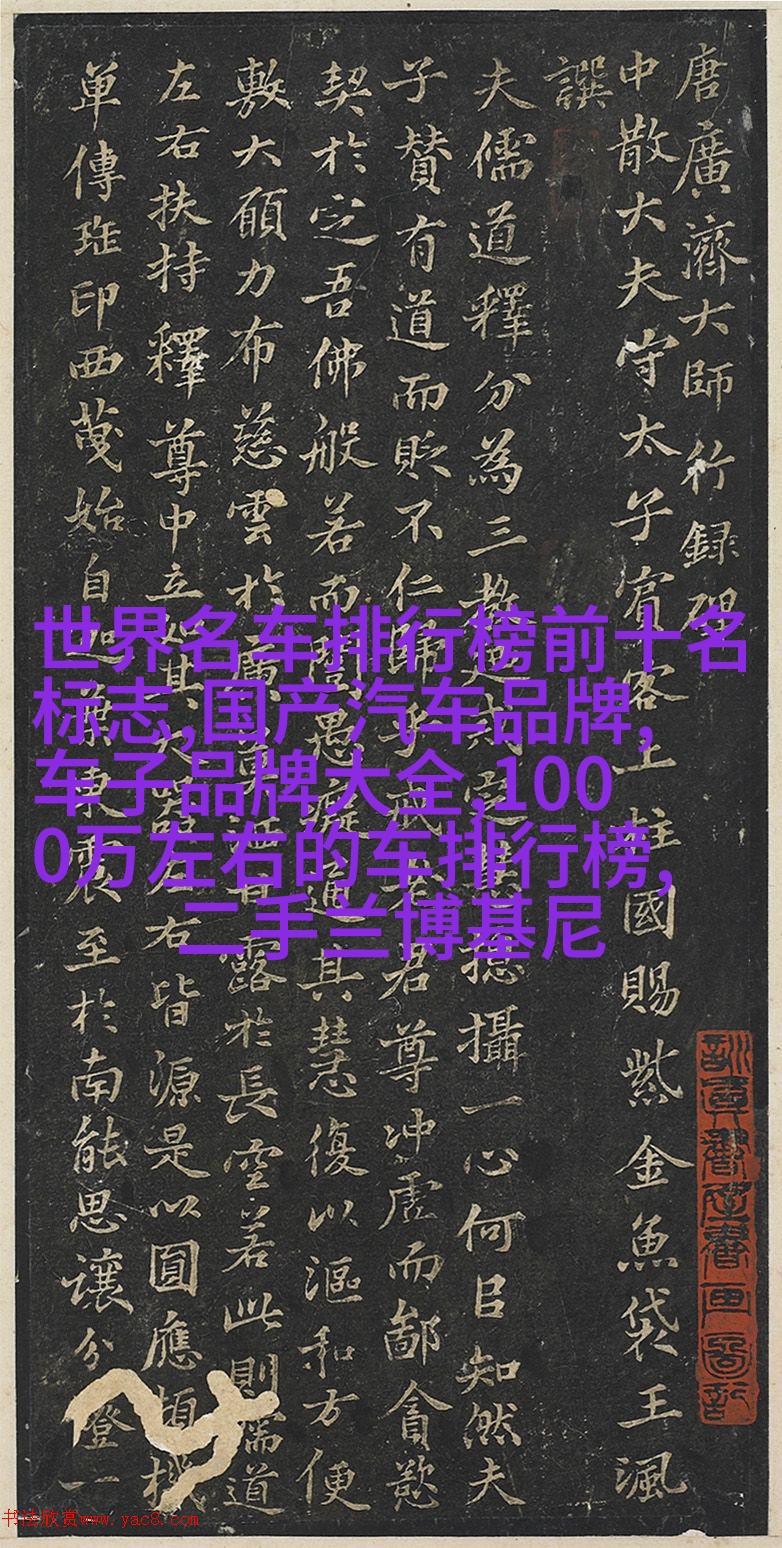 唐廣濟大師行録
中散大夫守太子賓客上柱國賜紫金魚袋王渢
譔
夫儒道釋分為三教攝一心何㠯知然夫
子賛有道而貶不仁歸乎君尊沖虛而鄙貪慾
契於定吾佛般若而愚通其慧復以漚和方便
敷大願力布慈雲於廣露於長空若此則儒道
左右扶持釋尊中立如其右皆源是以圓應頓機
單傳印西始自東震至於南能思讓分燈一
世界名车排行榜前十名
标志,国产汽车品牌,
车子品牌大全,100
0万左右的车排行榜,
二手兰博基尼
书法欣赏www.yac8.com